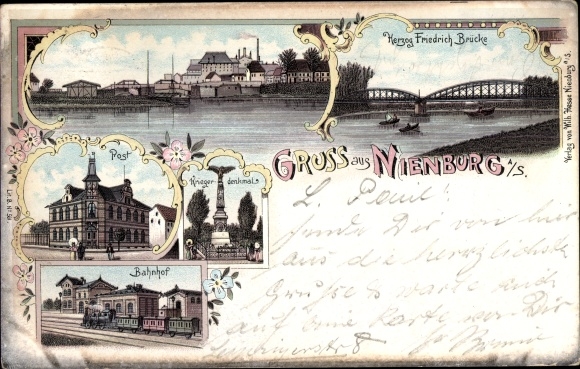 Herzog Friedrich Brücke
Verlag von Wilh. Hesse Nienburg a/S.
Post
Krieger-
denkmal.
GRUSS aus NIENBURG A/S.
Bahnhof
L. Paul
sende Dir von hier
aus die herzlichste
Grüsse warte auch
auf eine Karte von Dir